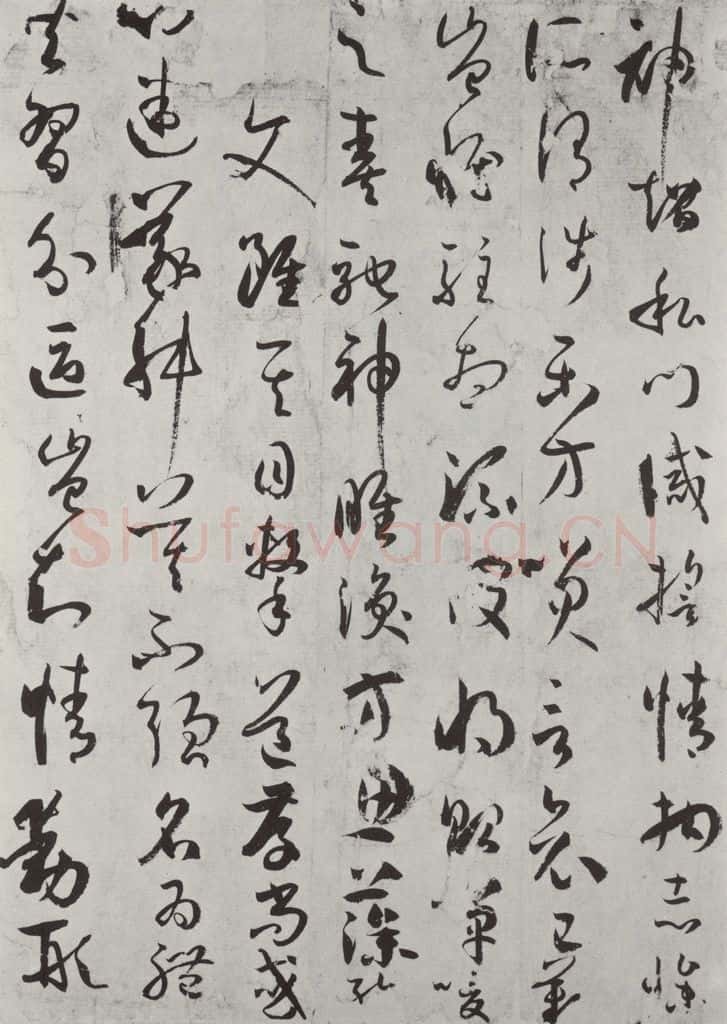 神超私門誡誓情拘志慘
所謂涉樂方笑言哀已歎
豈惟駐想流波將貽嘽喛
之奏馳神睢渙方思藻繪
文雖其目擊道存尚或
心迷議舛莫不強名為體
共習分區豈知情動形
Shufawang.CN